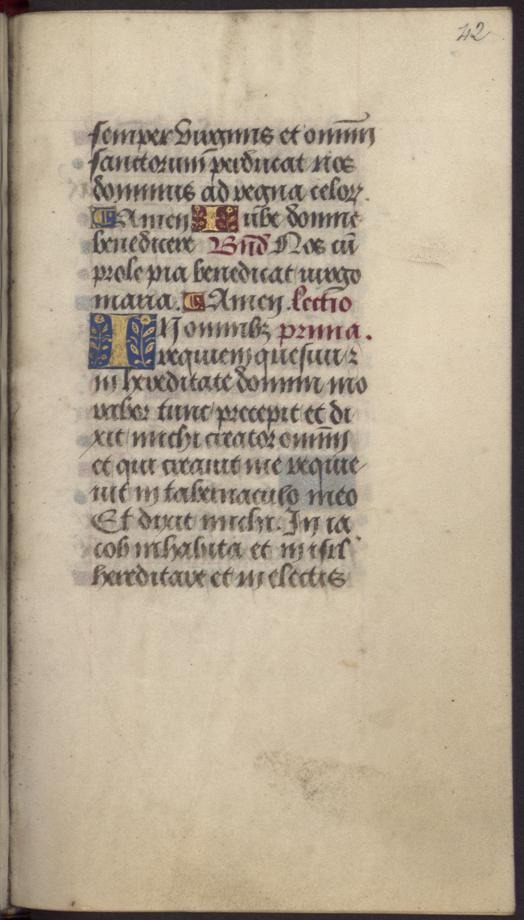 42
semper virginis et omniū
sanctorum perducat nos
dominus ad regna celorꝝ.
Amen Iube domne
benedicere Bn̄d Nos cū
prole pia benedicat virgo
maria. Amen. lectio
IN omnibꝫ prima.
requiem quesiui ꝛ
in hereditate domini mo
rabor tunc precepit et di
xit michi creator omniū
et qui creauit me requie
uit in tabernaculo meo
Et dixit michi. In ia
cob inhabita et in isrl̄
hereditare et in electis